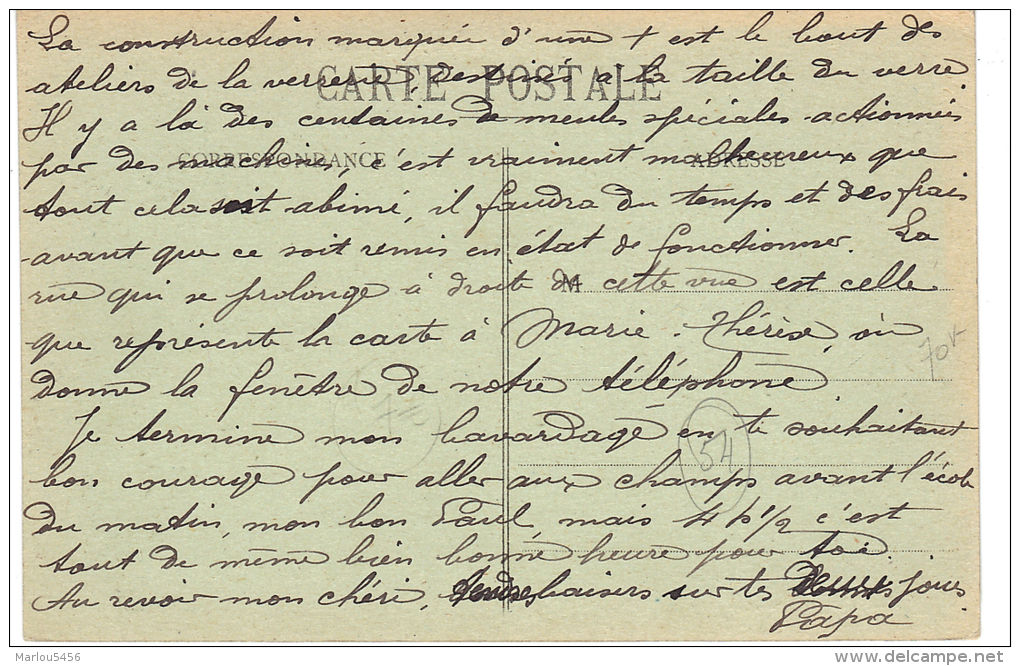 La construction marquée d'une + est le bout des
ateliers de la verrerie, destinés a la taille du verre
CARTE POSTALE
Il y a là des centaines de meules spéciales actionnées
par des machines, c'est vraiment malheureux que
CORRESPONDANCE
ADRESSE
tout cela soit abimé, il faudra du temps et des frais
avant que ce soit remis en état de fonctionner. La
rue qui se prolonge à droite de cette vue est celle
M
que représente la carte à Marie-Thérèse, où
donne la fenêtre de notre téléphone.
70f
Je termine mon bavardage en te souhaitant
54
bon courage pour aller aux champs avant l'école
du matin, mon bon Paul, mais 4h1/2 c'est
tout de même bien bonne heure pour toi.
Au revoir mon chéri, tendres baisers sur tes deux joues
Papa
Marlou5456
www.delcampe.net